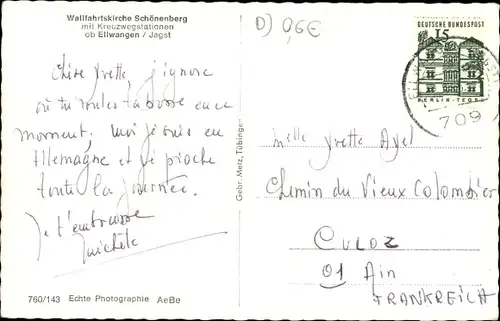 Wallfahrtskirche Schönenberg
mit Kreuzwegstationen
ob Ellwangen / Jagst
D) 0,6€
DEUTSCHE BUNDESPOST
15
BERLIN-TEGEL
709
Chère Yvette, j'ignore
où tu roules ta bosse en ce
moment. Moi je suis en
Allemagne et je pioche
toute la journée.
Je t'embrasse
Michèle
Gebr. Metz, Tübingen
Melle Yvette Ayel
Chemin du Vieux Colombier
CULOZ
01 Ain
FRANKREICH
760/143 Echte Photographie AeBe